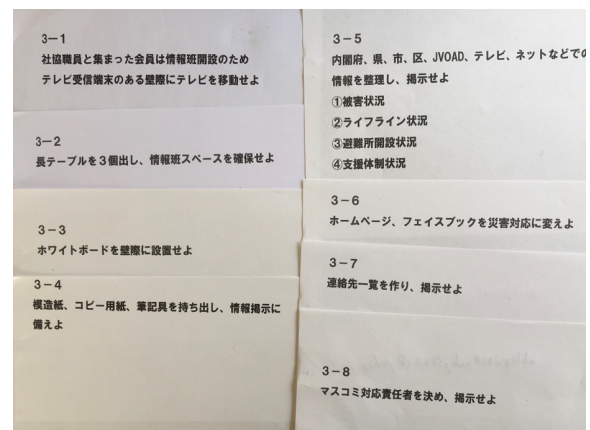 3－1
社協職員と集まった会員は情報班開設のため
テレビ受信端末のある壁際にテレビを移動せよ
3－2
長テーブルを３個出し、情報班スペースを確保せよ
3－3
ホワイトボードを壁際に設置せよ
3－4
模造紙、コピー用紙、筆記具を持ち出し、情報掲示に
備えよ
3－5
内閣府、県、市、区、JVOAD、テレビ、ネットなどでの
情報を整理し、掲示せよ
①被害状況
②ライフライン状況
③避難所開設状況
④支援体制状況
3－6
ホームページ、フェイスブックを災害対応に変えよ
3－7
連絡先一覧を作り、掲示せよ
3－8
マスコミ対応責任者を決め、掲示せよ